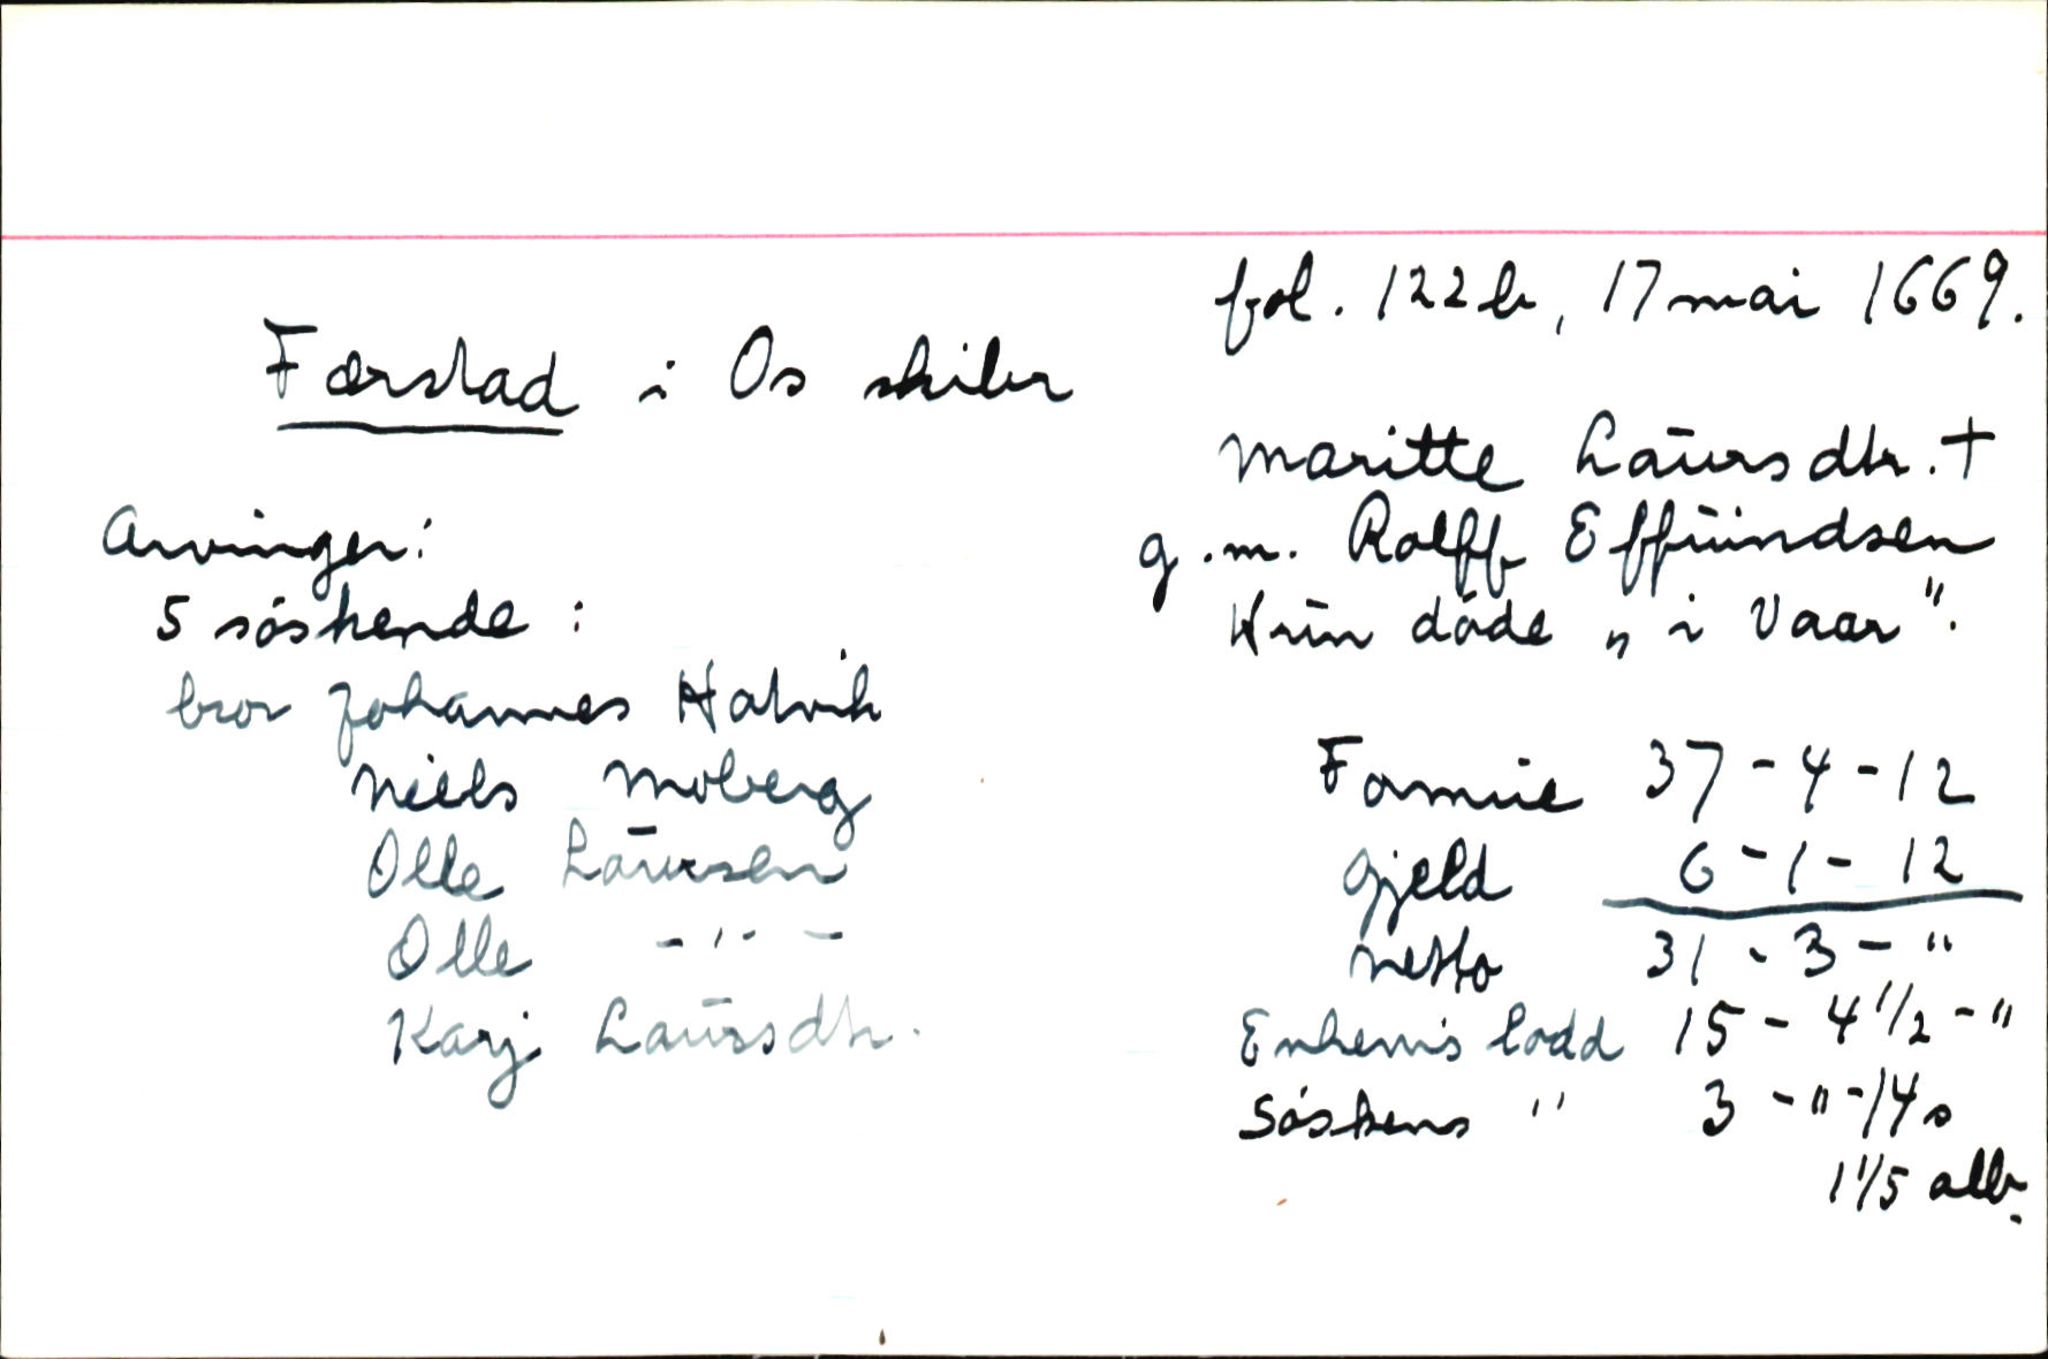 fol. 122b, 17 mai 1669.
Færstad i Os skibr
Maritte Laursdtr. +
g.m. Rolff Effuindsen
Hun døde „i Vaar".
Arvinger:
5 søskende:
bror Johannes Hatvik
Niels Moberg
Olle Laursen
Olle -"-
Karj Laursdtr.
Formue 37-4-12
Gjeld 6-1-12
netto 31-3-"
Enkem's lodd 15-4 1/2-"
Søskens " 3-"-14s
1 1/5 alb.